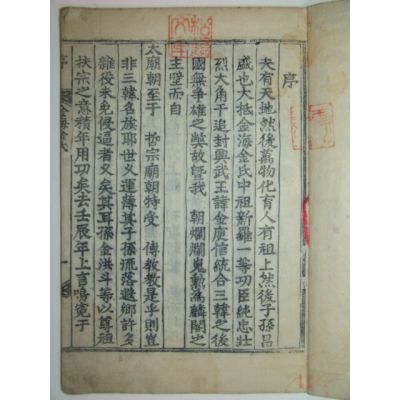 序
夫有天地然後萬物化育人有祖上然後子孫昌
盛也大抵金海金氏中祖新羅一等功臣純忠壯
烈大角干追封興武王金庾信統合三韓之後
國無爭雄之獘故曁我 朝爛爛嵬勳爲麟閣之
主壁而自
太廟朝至于 哲宗廟朝特受 傳敎敎是乎則豈
非三韓名族耶世乂運薄其子孫流落遐鄕許多
雜役未免侵逼者乂矣其耳孫金洪斗等以尊祖
扶宗之意積年用功矣去壬辰年上言鳴寃于
序
金海金氏
一